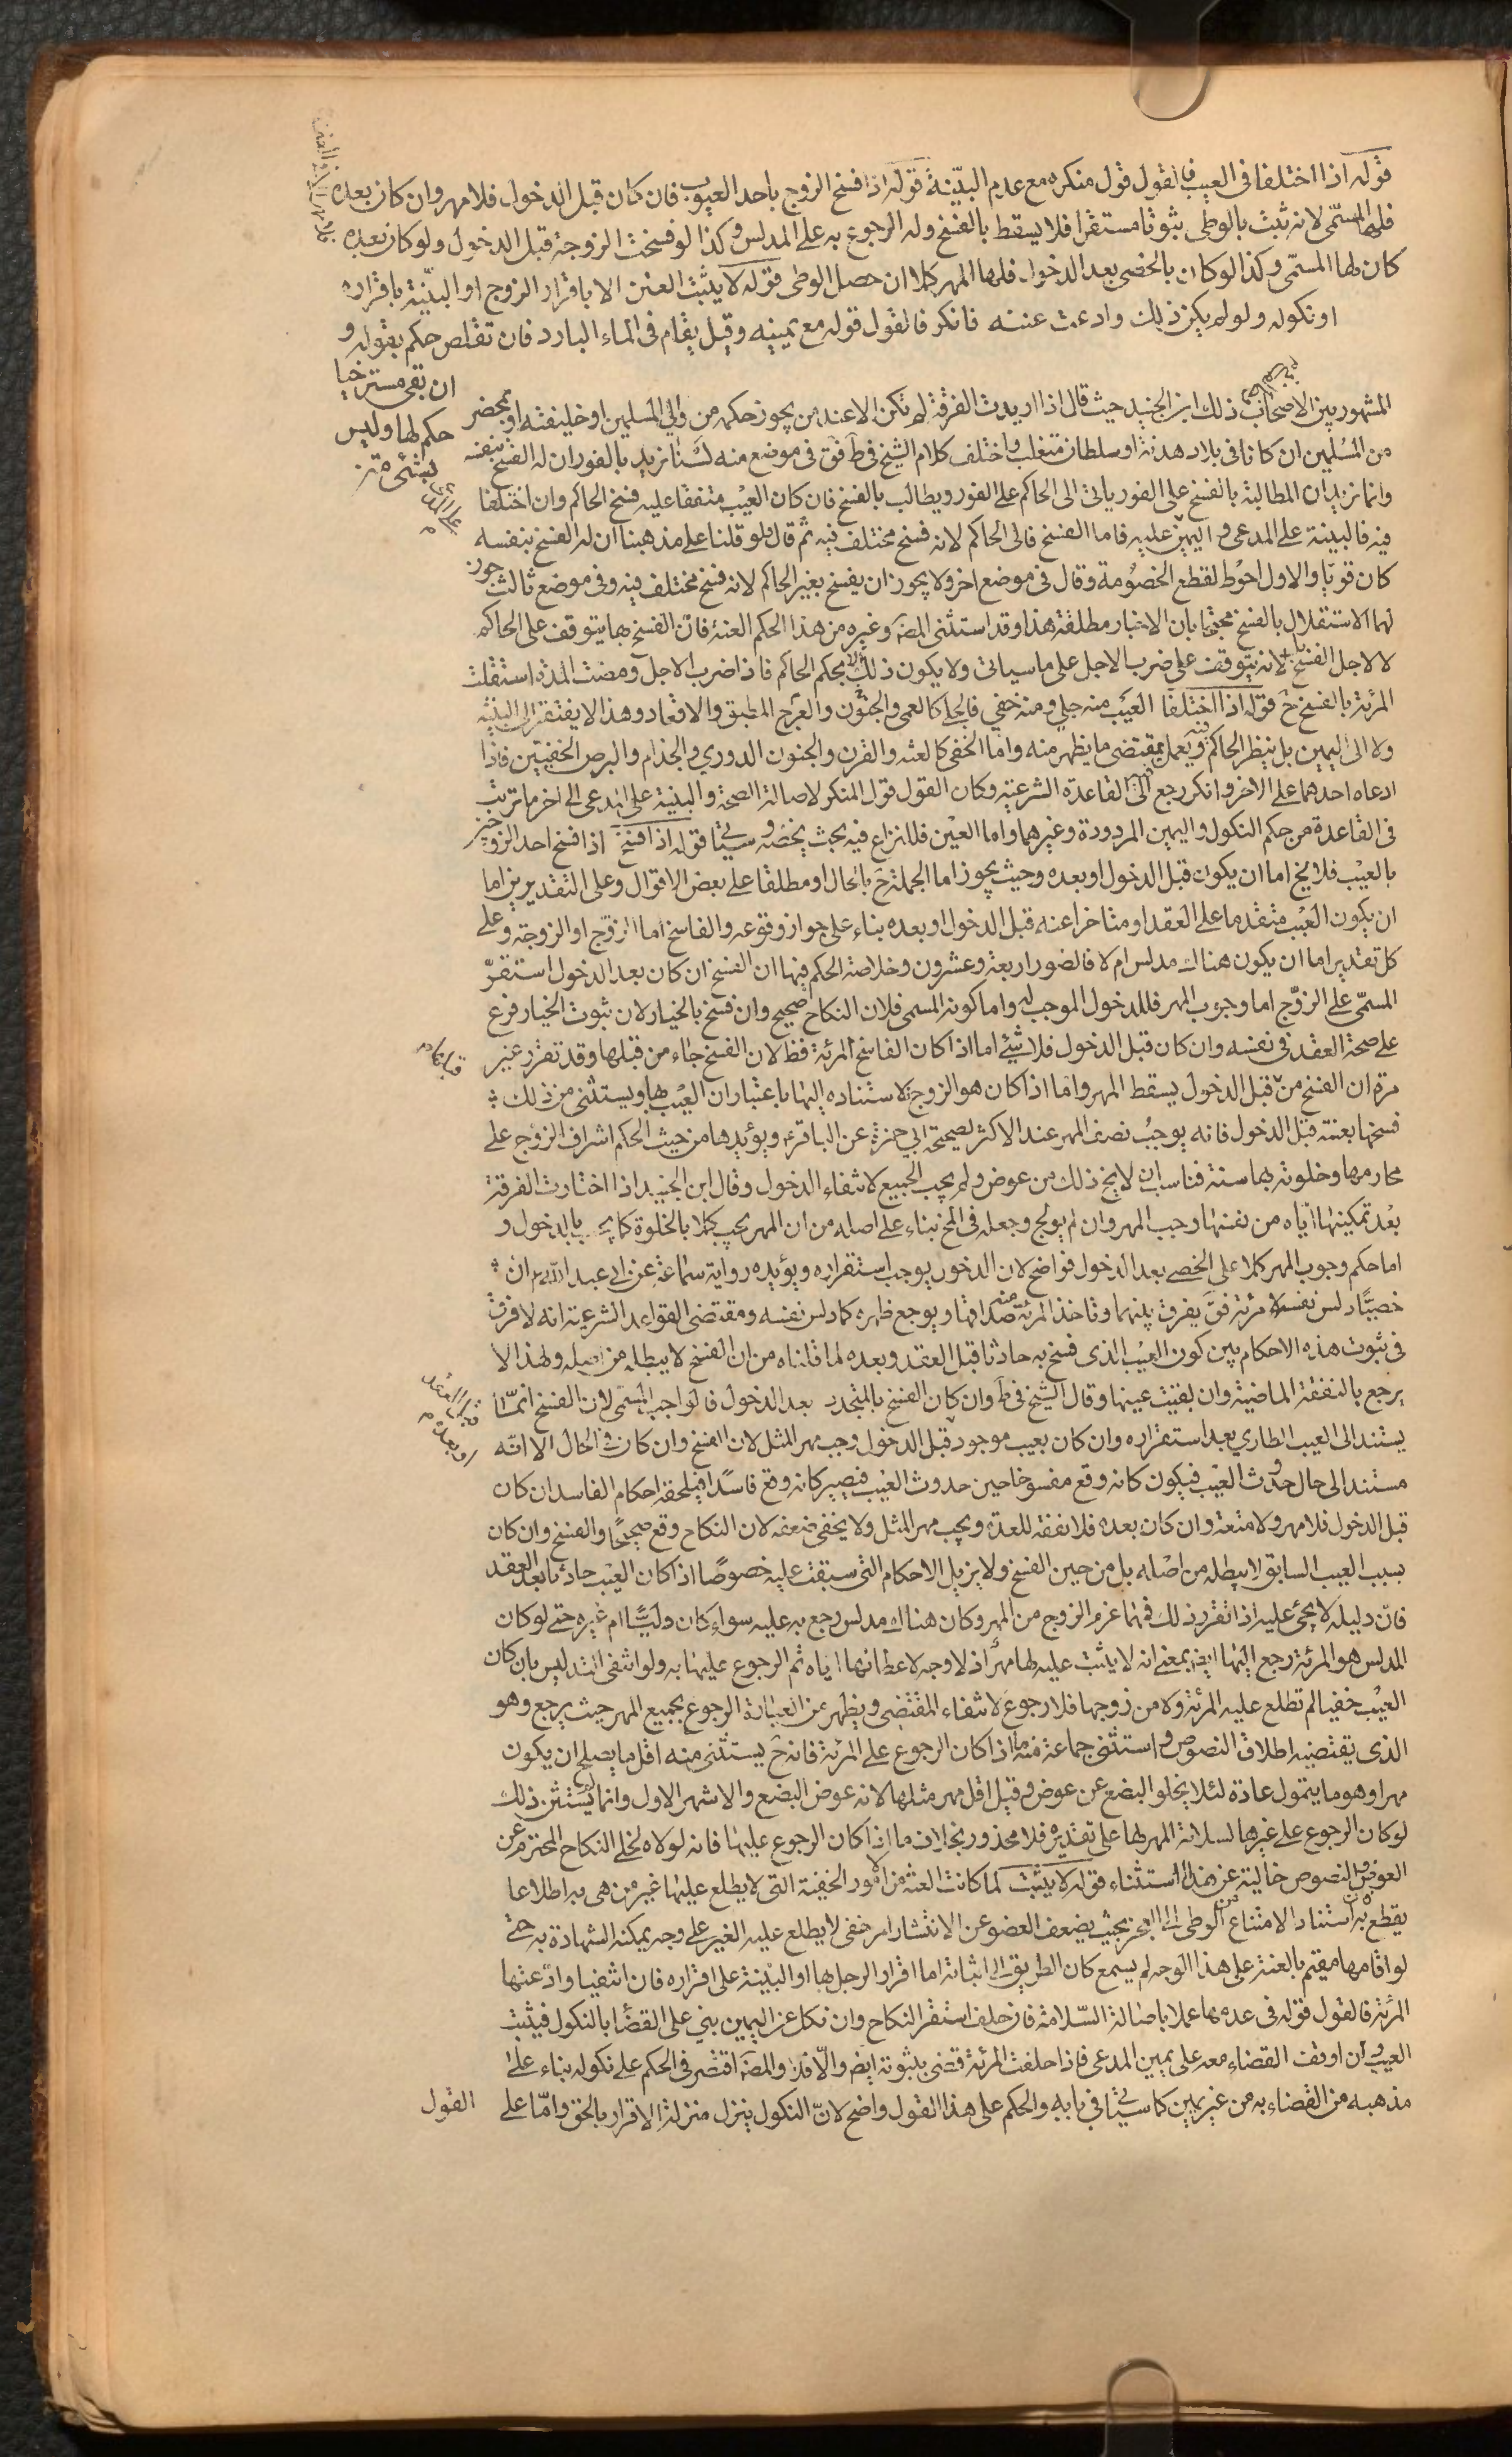 قوله اذا اختلفا فى العيب فالقول قول منكره مع عدم البيّنة قوله اذا فسخ الزوج باحد العيوب فان كان قبل الدخول فلا مهر وان كان بعده
فلها المسمّى لانه ثبت بالوطى ثبوتا مستقرا فلا يسقط بالفسخ وله الرجوع به على المدلس وكذا لو فسخت الزوجة قبل الدخول ولو كان بعده
كان لها المسمّى وكذا لو كان بالخصى بعد الدخول فلها المهر كملا ان حصل الوطى قوله لا يثبت العنن الا باقرار الزوج او البيّنة باقراره
او نكوله ولو لم يكن ذلك وادعت عننه فانكر فالقول قوله مع يمينه وقيل يقام فى الماء البارد فان تقلص حكم بقوله و
ان بقى مسترخيا
حكم لها وليس
بشئ متن
المشهور بين الاصحاب ذلك ابن الجنيد حيث قال اذا اريدت الفرقة لم تكن الا عند من يجوز حكمه من والي المسلمين او خليفته او بمحضر
من المسلمين ان كانا فى بلاد هدنة او سلطان متغلب واختلف كلام الشيخ فى ط فق فى موضع منه لسنا نريد بالفور ان له الفسخ بنفسه
وانما نريد ان المطالبة بالفسخ على الفور ياتى الى الحاكم على الفور ويطالب بالفسخ فان كان العيب متفقا عليه فسخ الحاكم وان اختلفا
فيه فالبينة على المدعى واليمين عليه فاما الفسخ فالى الحاكم لانه فسخ مختلف فيه ثم قال ولو قلنا على مذهبنا ان له الفسخ بنفسه
كان قويّا والاول احوط لقطع الخصومة وقال فى موضع اخر ولا يجوز ان يفسخ بغير الحاكم لانه فسخ مختلف فيه وفى موضع ثالث جوز
لهما الاستقلال بالفسخ محتجا بان الاخبار مطلقة هذا وقد استثنى المصَ وغيره من هذا الحكم العنة فان الفسخ بها يتوقف على الحاكم
لا لاجل الفسخ بل لانه يتوقف على ضرب الاجل على ما سياتى ولا يكون ذلك الا بحكم الحاكم فاذا ضرب الاجل ومضت المدة استقلت
المرئة بالفسخ ح قوله اذا اختلفا العيب منه جلي ومنه خفي فالجلى كالعمى والجنون والعرج المطبق والاقعاد وهذا لا يفتقر الى البينة
ولا الى اليمين بل ينظر الحاكم فيه ويعمل بمقتضى ما يظهر منه واما الخفى كالعنة والقرن والجنون الدوري والجذام والبرص الخفيتين فاذا
ادعاه احدهما على الاخر وانكر رجع الى القاعدة الشرعية وكان القول قول المنكر لاصالة الصحة والبينة على المدعى الى اخر ما ترتب
فى القاعدة من حكم النكول واليمين المردودة وغيرهما واما العنن فللنزاع فيه بحث يخصّه وسياتى قوله اذا فسخ اذا فسخ احد الزوجين
بالعيب فلا يخ اما ان يكون قبل الدخول او بعده وحيث يجوز اما الجملة ح بالحال او مطلقا على بعض الاقوال وعلى التقديرين اما
ان يكون العيب متقدما على العقد او متاخرا عنه قبل الدخول او بعده بناء على جواز وقوعه والفاسخ اما الزوّج او الزوجة وعلى
كل تقدير اما ان يكون هناك مدلس ام لا فالصور اربعة وعشرون وخلاصة الحكم فيها ان الفسخ ان كان بعد الدخول استقرّ
المسمّى على الزوّج اما وجوب المهر فللدخول الموجب له واما كونه المسمى فلان النكاح صحيح وان فسخ بالخيار لان ثبوت الخيار فرع
على صحة العقد فى نفسه وان كان قبل الدخول فلا شئ اما اذا كان الفاسخ المرئة فظ لان الفسخ جاء من قبلها وقد تقرر غير
مرة ان الفسخ من قبل الدخول يسقط المهر واما اذا كان هو الزوج لاستناده اليها باعتبار ان العيب بها ويستثنى من ذلك
قبلها م
فسخها بعنته قبل الدخول فانه يوجب نصف المهر عند الاكثر لصحيحة ابي حمزة عن الباقر ع ويؤيدها من حيث الحكم اشراف الزوج على
محارمها وخلوته بها سنة فناسب ان لا يخ ذلك من عوض ولم يجب الجميع لانتفاء الدخول وقال ابن الجنيد اذا اختارت الفرقة
بعد تمكينها ايّاه من نفسها وجب المهر وان لم يولج وجعله فى المخ بناء على اصله من ان المهر يجب كملا بالخلوة كما يجب بالدخول و
اما حكم وجوب المهر كملا على الخصى بعد الدخول فواضح لان الدخول يوجب استقراره ويؤيده رواية سماعة عن ابى عبد الله ع ان
خصيًّا دلس نفسه لامرئة فق يفرق بينهما وتاخذ المرئة منه صداقها ويوجع ظهره كما دلس نفسه ومقتضى القواعد الشرعية انه لا فرق
فى ثبوت هذه الاحكام بين كون العيب الذى فسخ به حادثا قبل العقد وبعده لما قلناه من ان الفسخ لا يبطله من اصله ولهذا لا
يرجع بالنفقة الماضية وان بقيت عينها وقال الشيخ فى ط وان كان الفسخ بالمتجدد بعد الدخول فالواجب المسمى لان الفسخ انمّا
يستند الى العيب الطاري بعد استقراره وان كان بعيب موجود قبل الدخول وجب مهر المثل لان الفسخ وان كان فى الحال الا انّه
قبل العقد
او بعده م
مستند الى حال حدوث العيب فيكون كانه وقع مفسوخا حين حدوث العيب فيصير كانه وقع فاسدًا فيلحقه احكام الفاسد ان كان
قبل الدخول فلا مهر ولا متعة وان كان بعده فلا نفقة للعدة ويجب مهر المثل ولا يخفى ضعفه لان النكاح وقع صحيحًا والفسخ وان كان
بسبب العيب السابق لا يبطله من اصله بل من حين الفسخ ولا يزيل الاحكام التى سبقت عليه خصوصًا اذا كان العيب حادثا بعد العقد
فانّ دليله لا يجئ عليه اذا تقرر ذلك فمهما غرم الزوج من المهر وكان هناك مدلس رجع به عليه سواء كان وليًّا ام غيره حتى لو كان
المدلس هو المرئة رجع اليها ايضا بمعنى انه لا يثبت عليه لها مهرًا اذ لا وجه لاعطائها اياه ثم الرجوع عليها به ولو انتفى التدليس بان كان
العيب خفيا لم تطلع عليه المرئة ولا من زوجها فلا رجوع لانتفاء المقتضى ويظهر من العبارة الرجوع بجميع المهر حيث يرجع وهو
الذى يقتضيه اطلاق النصوص واستثنى جماعة منه ما اذا كان الرجوع على المرئة فانه ح يستثنى منه اقل ما يصلح ان يكون
مهرا وهو ما يتمول عادة لئلا يخلو البضع عن عوض وقيل اقل مهر مثلها لانه عوض البضع والاشهر الاول وانما لم يستثن ذلك
لو كان الرجوع على غيرها لسلامة المهر لها على تقديره فلا محذور بخلاف ما اذا كان الرجوع عليها فانه لولاه لخلى النكاح المحترم عن
العوض والنصوص خالية عن هذا الاستثناء قوله لا يثبت لما كانت العنة من الامور الخفية التى لا يطلع عليها غير من هى به اطلاعا
يقطع به استناد الامتناع من الوطى الى العجز بحيث يضعف العضو عن الانتشار امر خفى لا يطلع عليه الغير على وجه يمكنه الشهادة به حتى
لو اقامها مقيم بالعنة على هذا الوجه لم يسمع كان الطريق الى اثباته اما اقرار الرجل بها او البيّنة على اقراره فان انتفيا وادّعتها
المرئة فالقول قوله فى عدمها عملا باصالة السّلامة فان حلف استقر النكاح وان نكل عن اليمين بني على القضا بالنكول فيثبت
العيب وان اوقف القضاء معه على يمين المدعى فاذا حلفت المرئة قضى بثبوته ايضا والّا فلا والمصَ اقتصر فى الحكم على نكوله بناء على
مذهبه من القضاء به من غير يمين كما سياتى فى بابه والحكم على هذا القول واضح لانّ النكول ينزل منزلة الاقرار بالحق وامّا على
القول